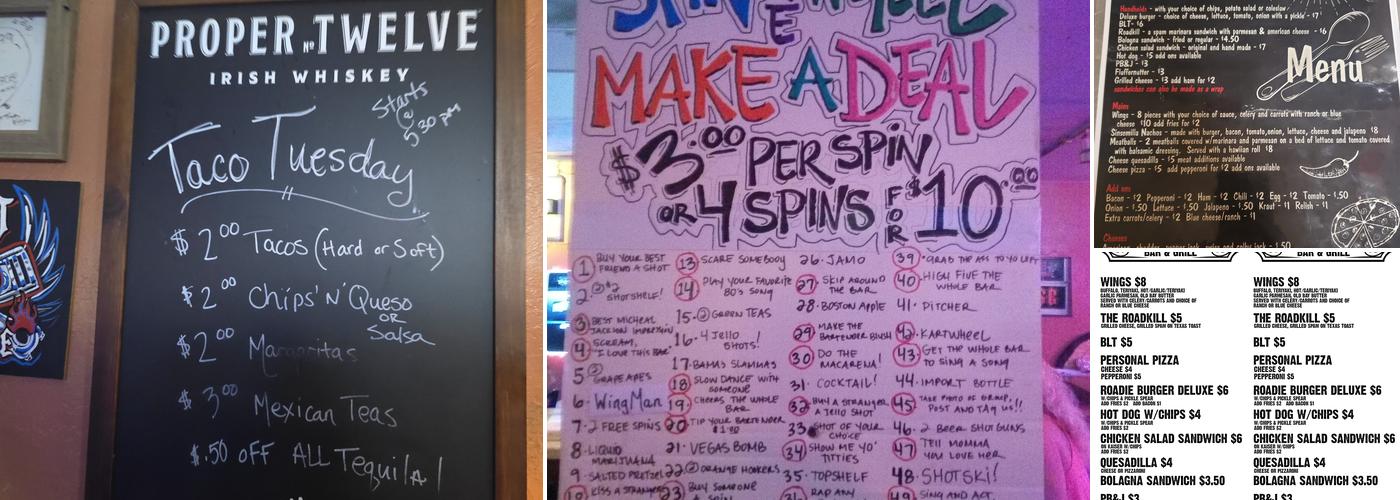 PROPER No. TWELVE
IRISH WHISKEY
Starts
@
5:30 pm
Taco Tuesday
$2.00 Tacos (Hard or Soft)
$2.00 Chips 'N' Queso
OR
Salsa
$2.00 Margaritas
$3.00 Mexican Teas
$.50 OFF ALL Tequila!
MAKE A DEAL
$3.00 PER SPIN
OR 4 SPINS FOR $10.00
1 BUY YOUR BEST
FRIEND A SHOT
2. 2 $2
SHOTSHELF!
3 BEST MICHEAL
JACKSON IMPRESSION
4 SCREAM,
"I LOVE THIS BAR"
5 2
GRAPE APES
6- WingMan
7- 2 FREE SPINS
8- LIQUID
MARIJUANA
9- SALTED PRETZEL
KISS A STRANGER
13 SCARE SOMEBODY
14 PLAY YOUR FAVORITE
80'S SONG
15- 2 GREEN TEAS
16- 4 Jello
SHOTS!
17- BAMA SLAMMAS
18 SLOW DANCE WITH
SOMEONE
19 CHEERS THE WHOLE
BAR
20 TIP YOUR BARTENDER
21- VEGAS BOMB
22- 2 ORANGE HOOKERS
23 BUY SOMEONE
A SPIN
26- JAMO
27- SKIP AROUND
THE BAR
28- BOSTON APPLE
29 MAKE THE
BARTENDER BLUSH
30 DO THE
MACARENA!
31- COCKTAIL!
32 BUY A STRANGER
A JELLO SHOT
33 SHOT OF YOUR
CHOICE
34 SHOW ME YO'
TITTIES
35- TOPSHELF
RAP ANY
39- GRAB THE ASS TO YO LEFT
40- HIGH FIVE THE
WHOLE BAR
41- PITCHER
42- KARTWHEEL
43- GET THE WHOLE BAR
TO SING A SONG
44- IMPORT BOTTLE
45- TAKE PHOTO OF GROUP,
POST AND TAG US!!
46- 2 BEER SHOTGUNS
47 TELL MOMMA
YOU LOVE HER
48- SHOTSKI!
49 SING AND ACT
Handhelds - with your choice of chips, potato salad or coleslaw
Deluxe burger - choice of cheese, lettuce, tomato, onion with a pickle - $7
BLT- $6
Roadkill - a spam marinara sandwich with parmesan & american cheese - $6
Bologna sandwich - fried or regular - $4.50
Chicken salad sandwich - original and hand made - $7
Hot dog - $5 add ons available
PB&J - $3
Fluffernutter - $3
Grilled cheese - $3 add ham for $2
sandwiches can also be made as a wrap
Menu
Mains
Wings - 8 pieces with your choice of sauce, celery and carrots with ranch or blue
cheese $10 add fries for $2
Sinsemilla Nachos - made with burger, bacon, tomato,onion, lettuce, cheese and jalapeno $8
Meatballs - 2 meatballs covered w/marinara and parmesan on a bed of lettuce and tomato covered
with balsamic dressing. Served with a hawiian roll $8
Cheese quesadilla - $5 meat additions available
Cheese pizza - $5 add pepperoni for $2 add ons available
Add ons
Bacon - $2 Pepperoni - $2 Ham - $2 Chili - $2 Egg - $2 Tomato - $.50
Onion - $.50 Lettuce - $.50 Jalapeno - $.50 Kraut - $1 Relish - $1
Extra carrots/celery - $2 Blue cheese/ranch - $1
Cheeses
American, cheddar, pepper jack, swiss and colby jack - $.50
BAR & GRILL
WINGS $8
BUFFALO, TERIYAKI, HOT/GARLIC/TERIYAKI
GARLIC PARMESAN, OLD BAY BUTTER
SERVED WITH CELERY/CARROTS AND CHOICE OF
RANCH OR BLUE CHEESE
THE ROADKILL $5
GRILLED CHEESE, GRILLED SPAM ON TEXAS TOAST
BLT $5
PERSONAL PIZZA
CHEESE $4
PEPPERONI $5
ROADIE BURGER DELUXE $6
W/CHIPS & PICKLE SPEAR
ADD FRIES $2 ADD BACON $1
HOT DOG W/CHIPS $4
W/CHIPS & PICKLE SPEAR
ADD FRIES $2
CHICKEN SALAD SANDWICH $6
OR KAISER W/CHIPS
ADD FRIES $2
QUESADILLA $4
CHEESE OR PIZZARONI
BOLAGNA SANDWICH $3.50
PB&J $3
BAR & GRILL
WINGS $8
BUFFALO, TERIYAKI, HOT/GARLIC/TERIYAKI
GARLIC PARMESAN, OLD BAY BUTTER
SERVED WITH CELERY/CARROTS AND CHOICE OF
RANCH OR BLUE CHEESE
THE ROADKILL $5
GRILLED CHEESE, GRILLED SPAM ON TEXAS TOAST
BLT $5
PERSONAL PIZZA
CHEESE $4
PEPPERONI $5
ROADIE BURGER DELUXE $6
W/CHIPS & PICKLE SPEAR
ADD FRIES $2 ADD BACON $1
HOT DOG W/CHIPS $4
W/CHIPS & PICKLE SPEAR
ADD FRIES $2
CHICKEN SALAD SANDWICH $6
OR KAISER W/CHIPS
ADD FRIES $2
QUESADILLA $4
CHEESE OR PIZZARONI
BOLAGNA SANDWICH $3.50
PB&J $3